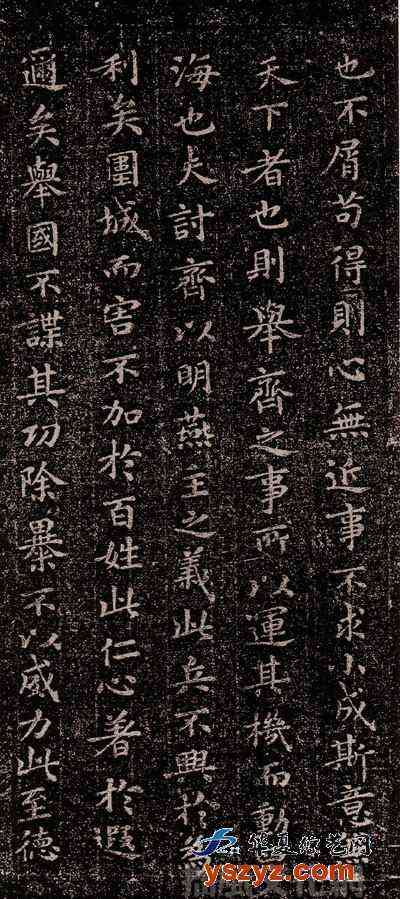 也不屑苟得則心無近事不求小成斯意無
天下者也則舉齊之事所以運其機而動
海也夫討齊以明燕主之義此兵不興於
利矣圍城而害不加於百姓此仁心著於遐
邇矣舉國不謀其功除暴不以威力此至德
yszyz.com